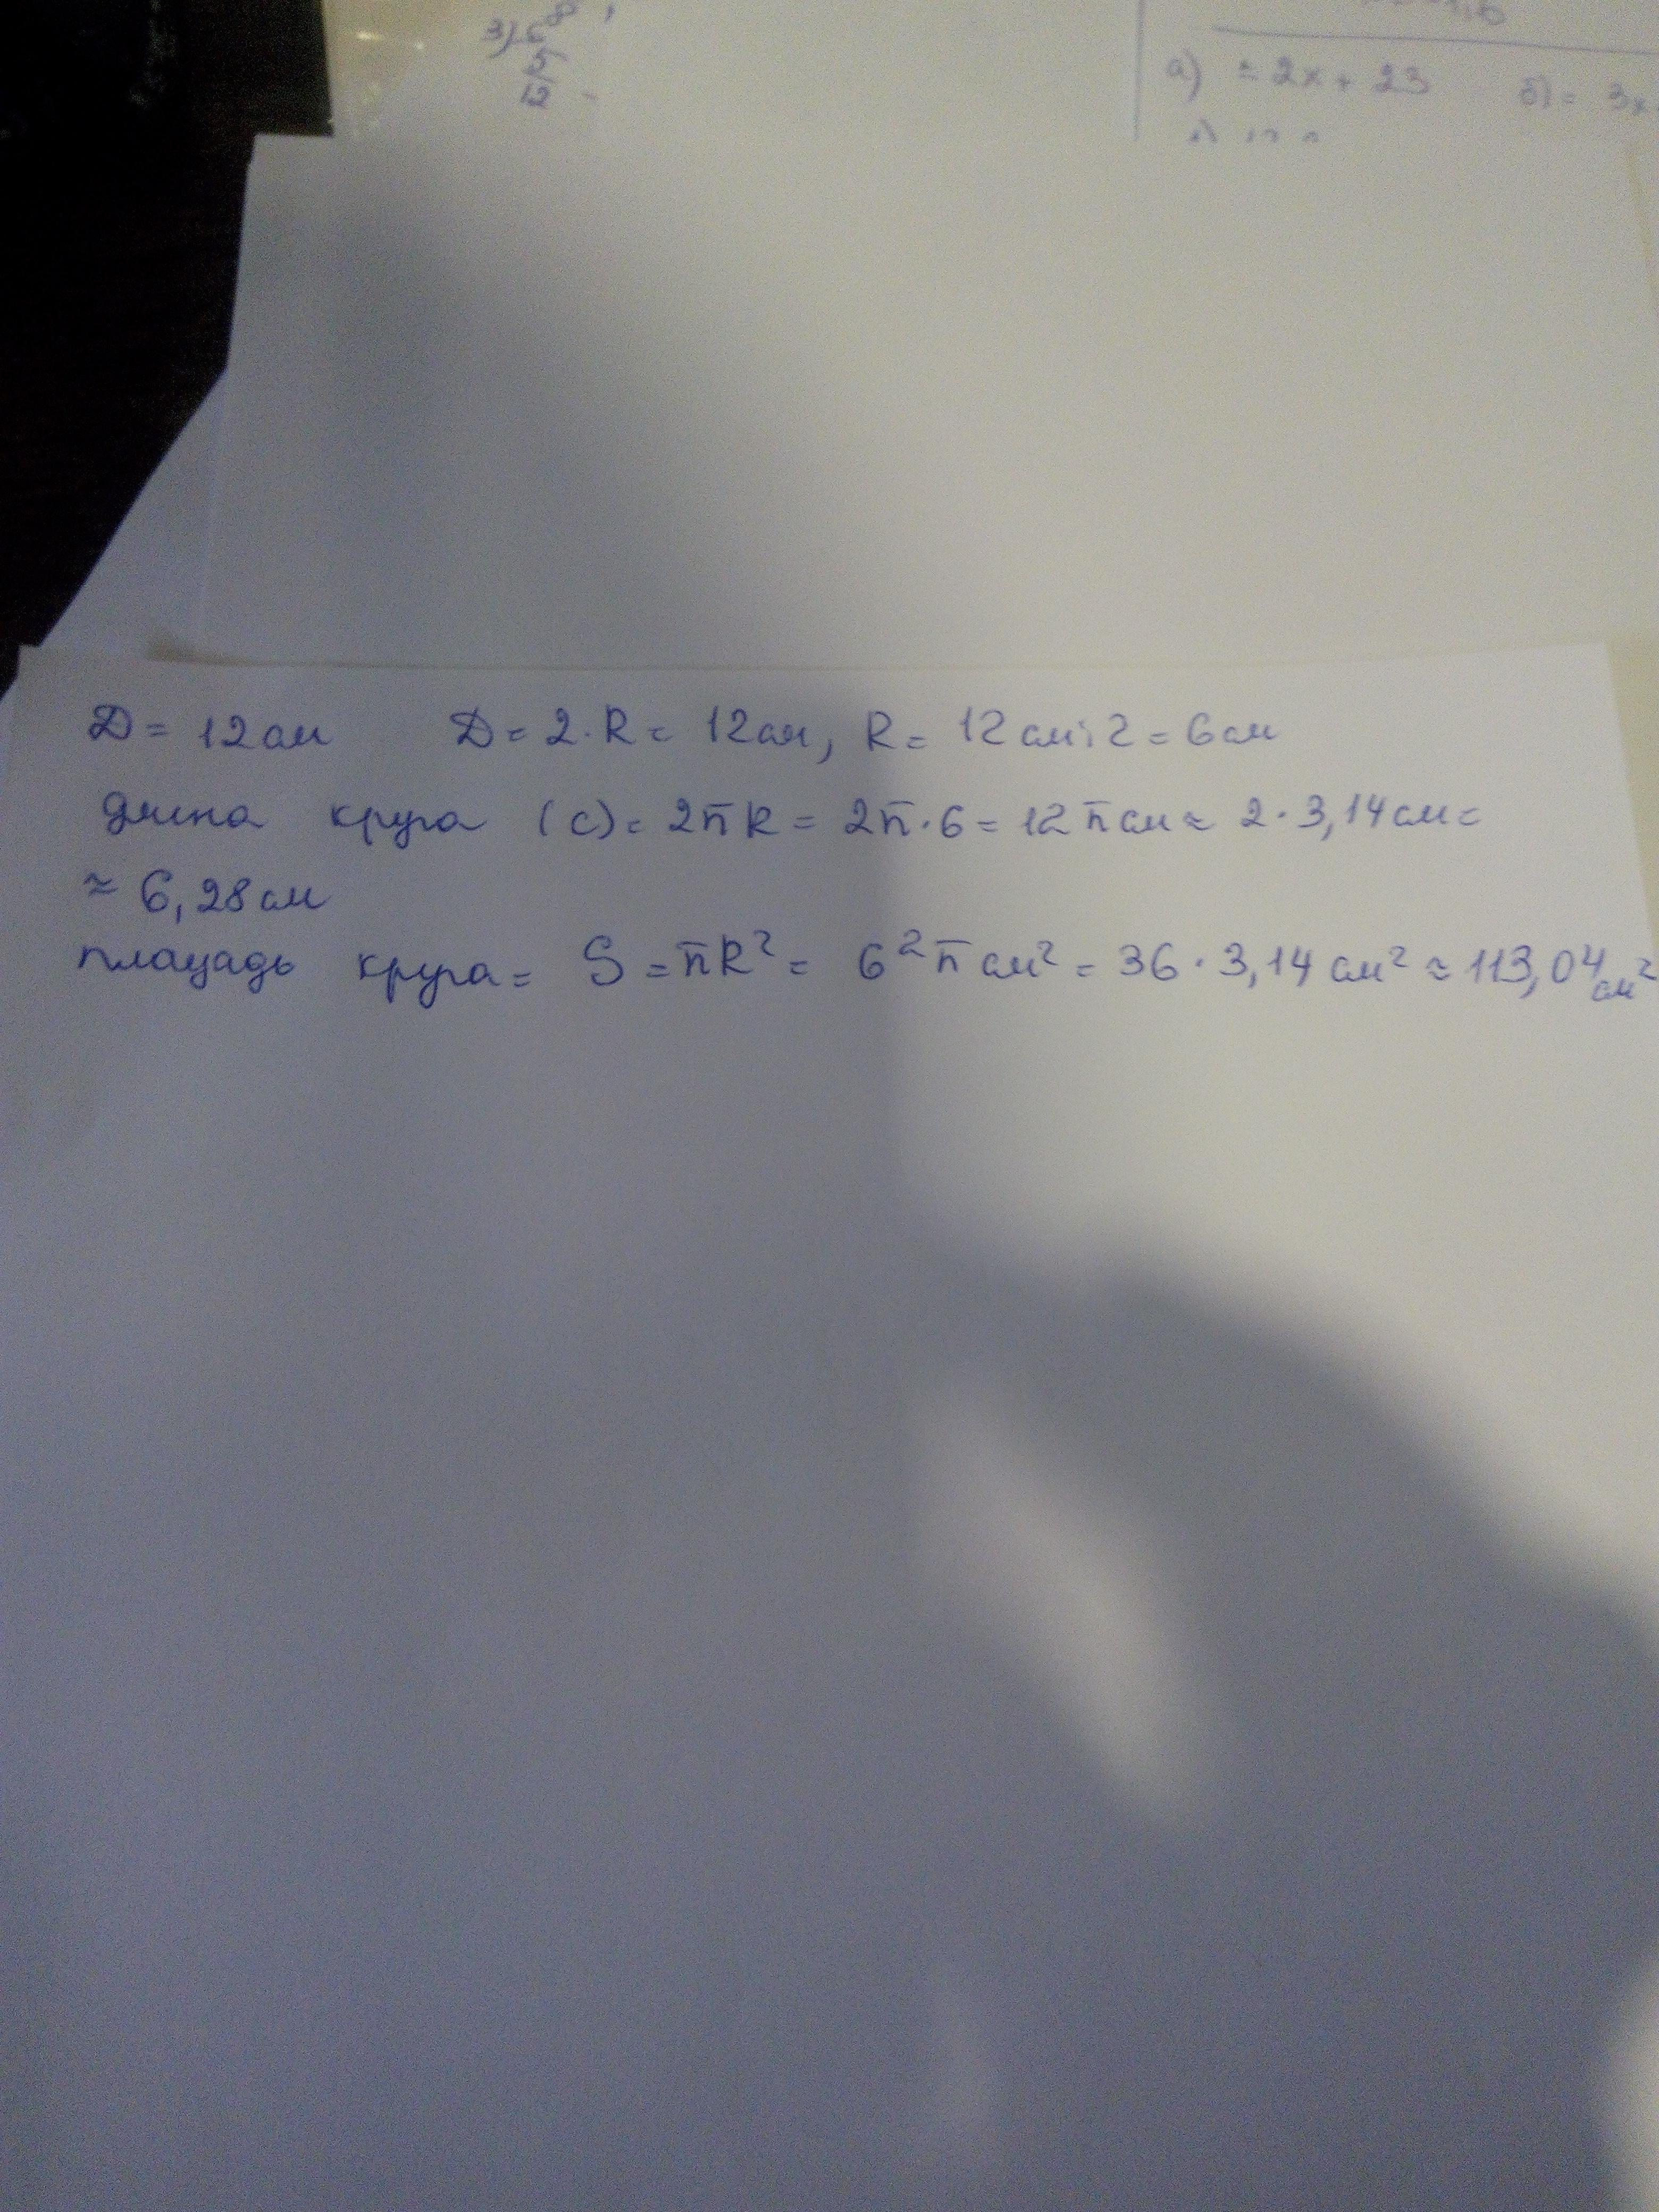 а) = 2х + 23 б) = 3х
Д = 12см Д = 2·R = 12см, R = 12см:2 = 6см
длина круга (С) = 2πR = 2π·6 = 12π см ≈ 2·3,14см =
≈ 6,28см
площадь круга = S = πR² = 6²π см² = 36·3,14 см² ≈ 113,04 см²